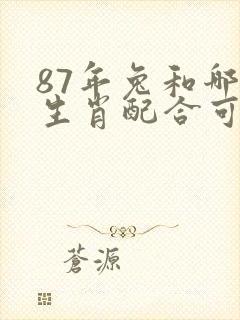 87年兔和哪
生肖配合可
蒼源